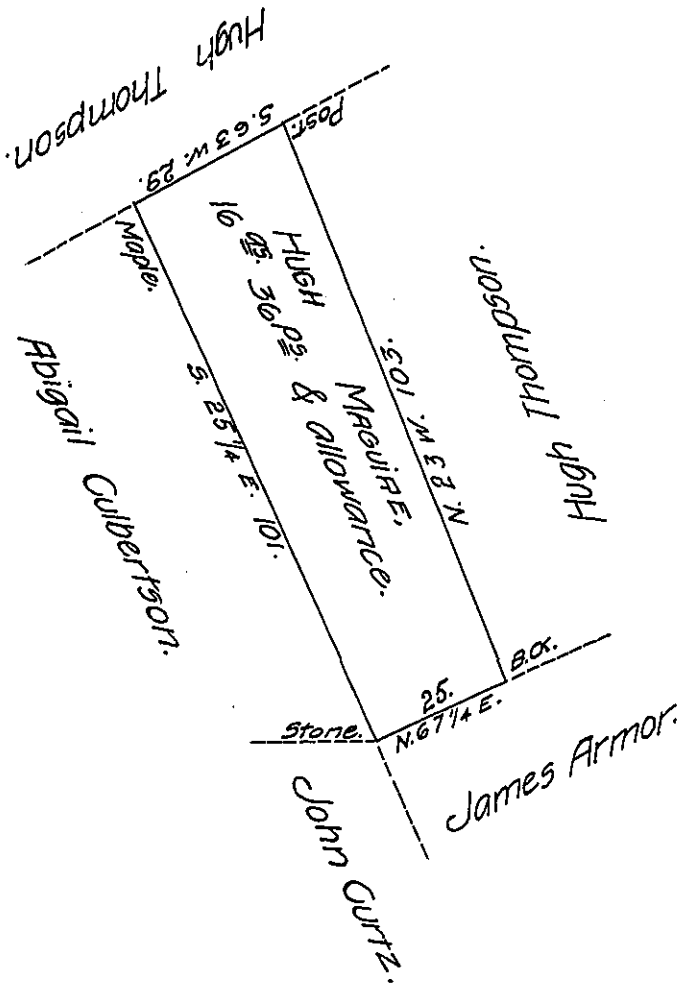 Hugh Thompson.
S. 63 W. 29.
Post.
Maple.
HUGH MAGUIRE,
16 as. 36 ps. & allowance.
N. 23 W. 103.
S. 25 1/4 E. 101.
Hugh Thompson.
Abigail Culbertson.
B.O.
25.
N. 67 1/4 E.
Stone.
James Armor.
John Curtz.